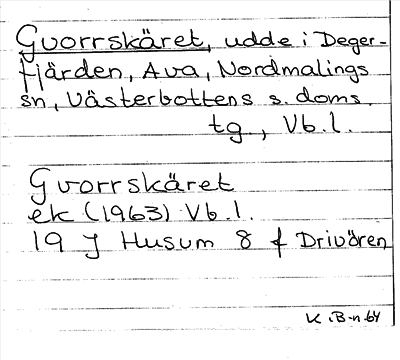 Gvorrskäret, udde i Deger-
fjärden, Ava, Nordmalings
sn, Västerbottens s. doms.
tg., Vb.l.
Gvorrskäret
ek (1963) Vb.l.
19 J Husum 8 f Drivören
K.B-n.64